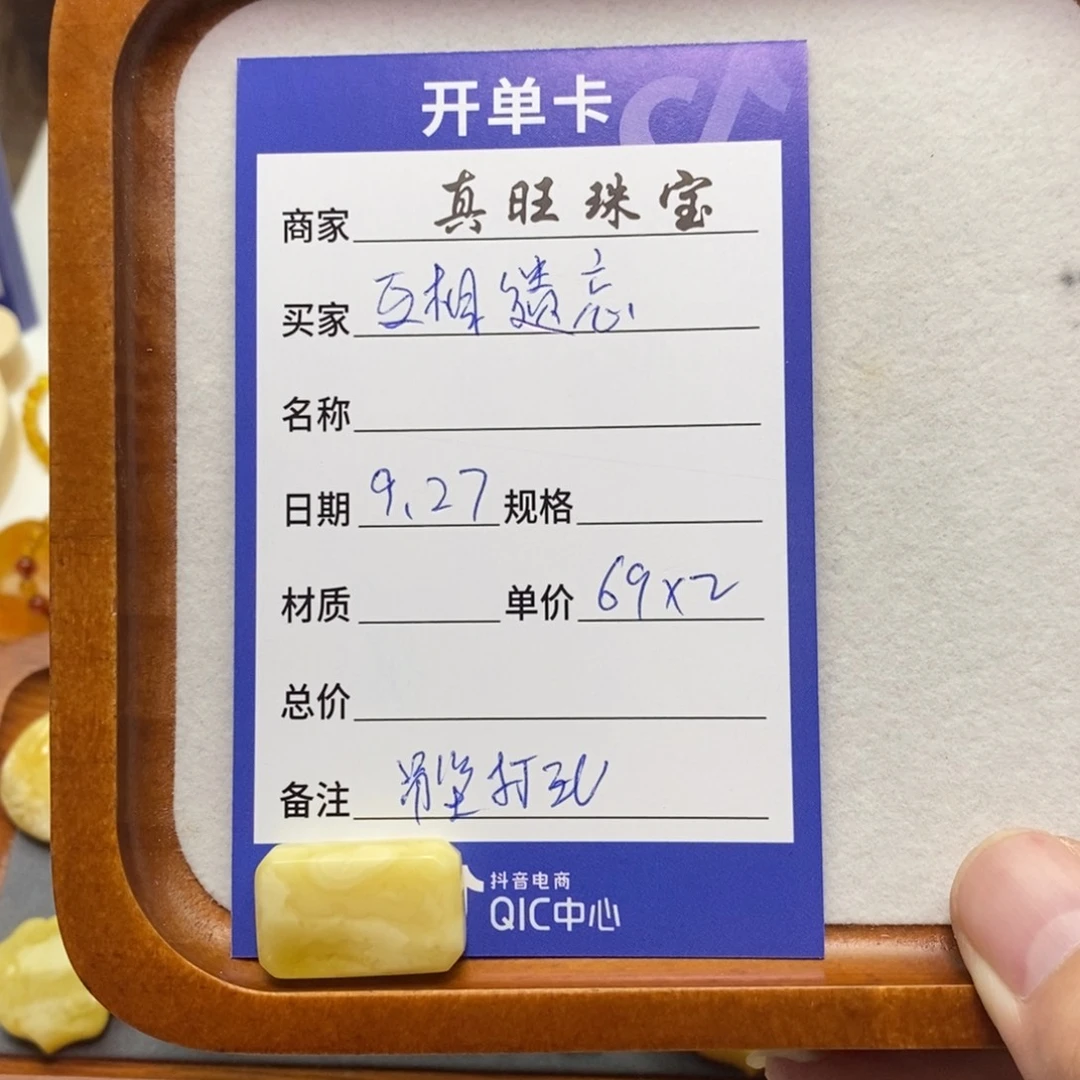 开单卡
商家 真旺珠宝
买家 互相遗忘
名称
日期 9.27 规格
材质 单价 69x2
总价
备注 打孔
抖音电商
QIC中心